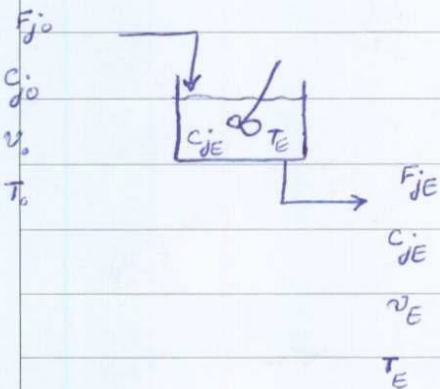 Fj₀
Cj₀
v₀
T₀
CjE TE
FjE
CjE
vE
TE